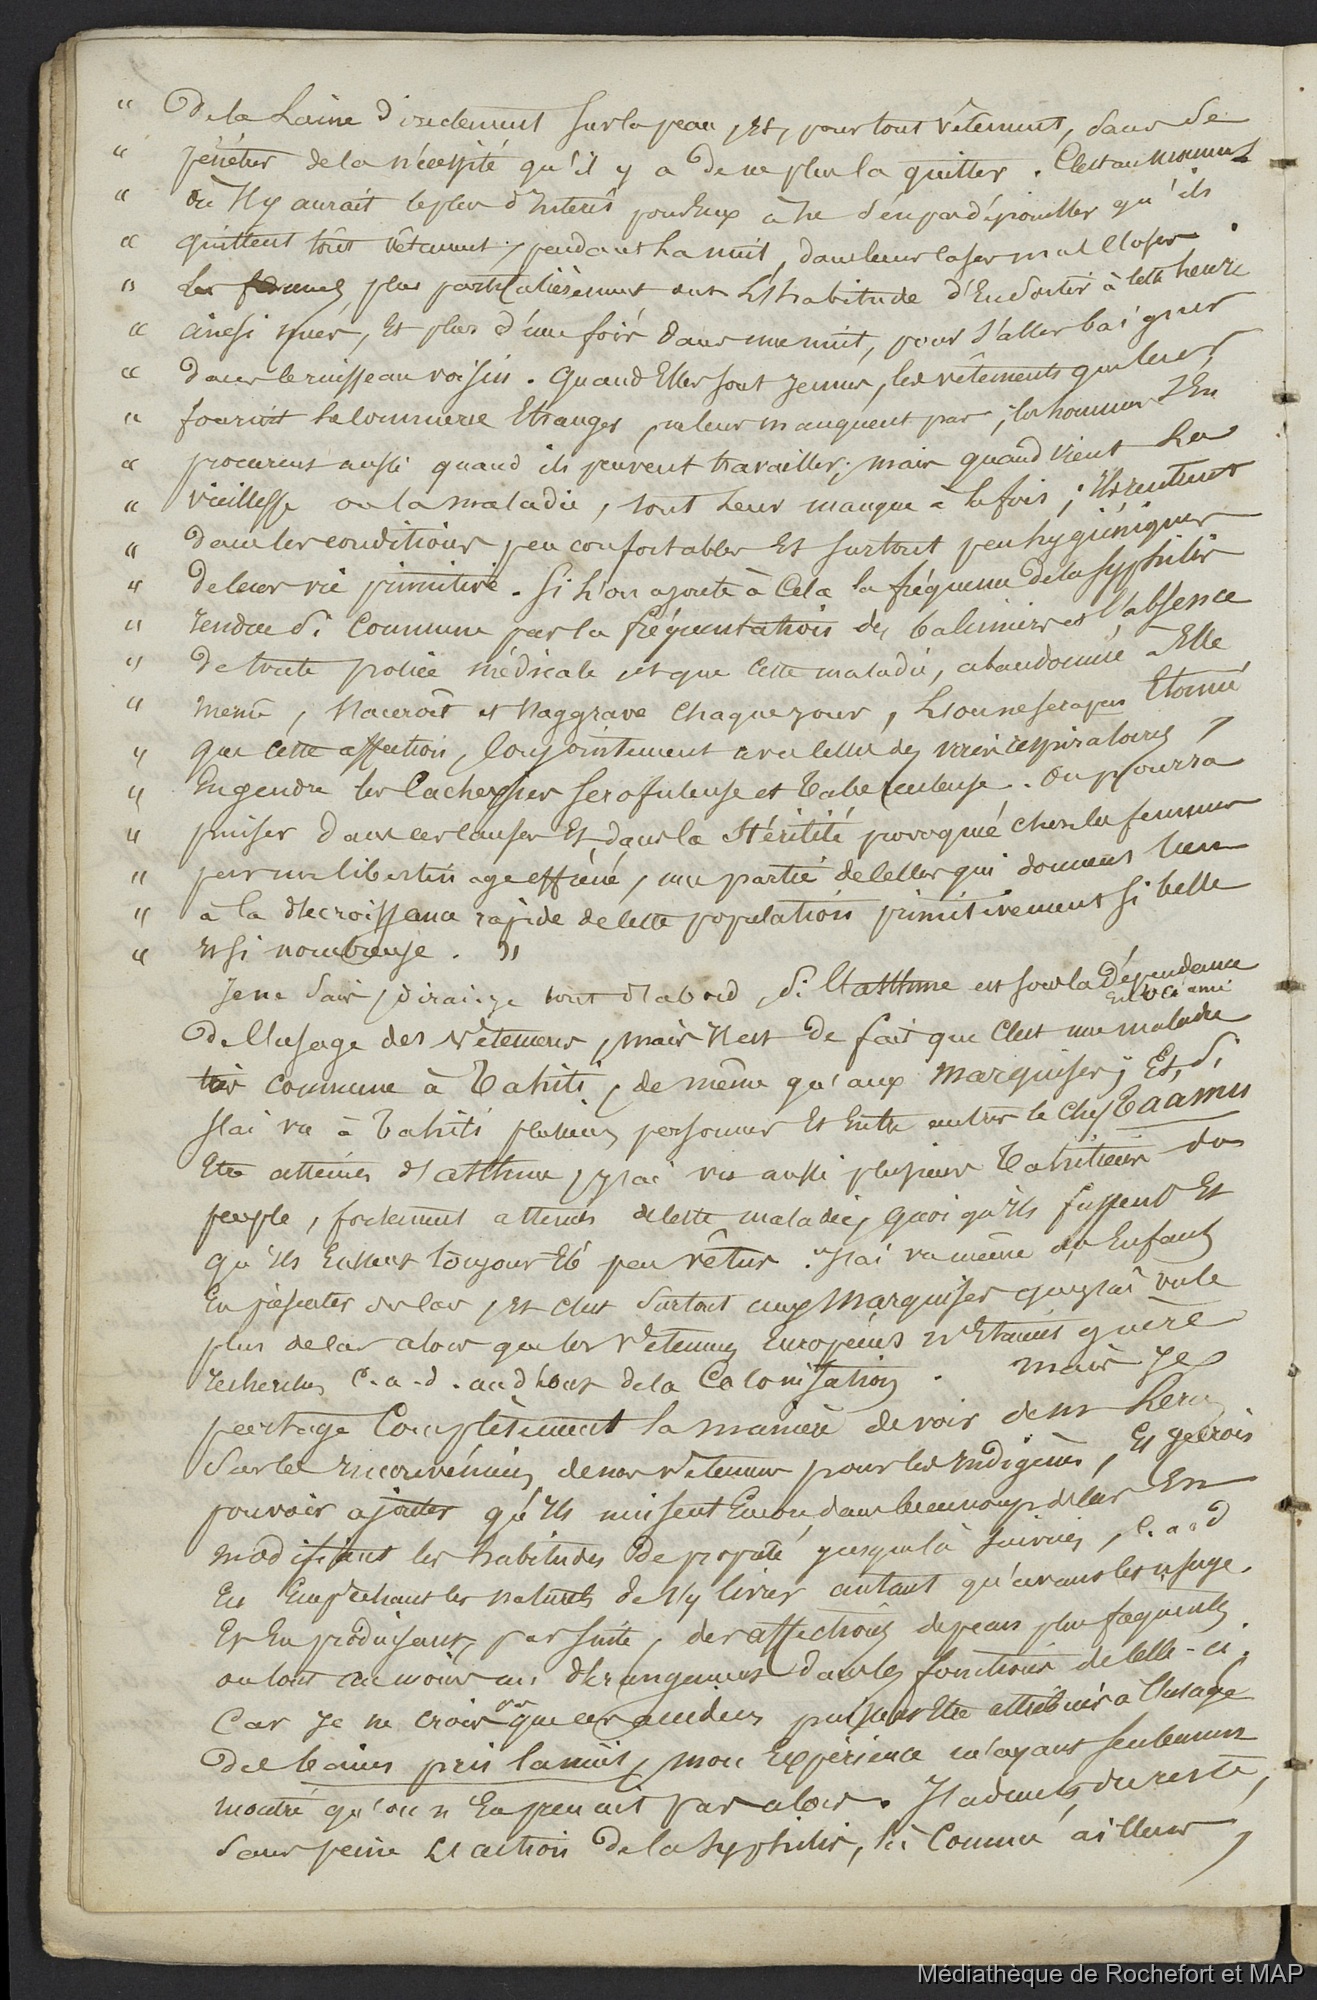 " De la laine directement sur la peau, et, pour tout vêtement, sans se
" pénétrer de la nécessité qu'il y a de ne plus la quitter. C'est au moment
" où il y aurait le plus d'intérêt pour eux à ne s'en pas dépouiller qu'ils
" quittent tout vêtement, pendant la nuit, dans leurs cases mal closes.
" Les femmes plus particulièrement ont l'habitude d'en sortir à cette heure
" ainsi nues, et plus d'une fois dans une nuit, pour s'aller baigner
" dans le ruisseau voisin. Quand elles sont jeunes, les vêtements que leur
" fournit le commerce étranger, ne leur manquent pas; les hommes s'en
" procurent aussi quand ils peuvent travailler; mais quand vient la
" vieillesse ou la maladie, tout leur manque à la fois; ils rentrent
" dans les conditions peu confortables et surtout peu hygiéniques
" de leur vie primitive. Si l'on ajoute à cela la fréquence de la syphilis
" rendue si commune par la fréquentation des baleiniers et l'absence
" de toute police médicale et que cette maladie, abandonnée à elle
" même, s'accroît et s'aggrave chaque jour, l'on ne sera pas étonné
" que cette affection, conjointement avec celle des voies respiratoires,
" engendre les cachexies scrofuleuse et tuberculeuse. On pourra
" puiser dans ces causes et dans la stérilité provoquée chez les femmes
" par un libertinage effréné, une partie de celles qui donnent lieu
" à la décroissance rapide de cette population primitivement si belle
" et si nombreuse. "
Je ne sais, dirai-je tout d'abord, si l'asthme est sous la dépendance
de l'usage des vêtements, mais il est de fait que c'est une maladie
très commune à Tahiti, de même qu'aux Marquises; et, si
j'ai vu à Tahiti plusieurs personnes et entre autres le chef Taamu
être atteints d'asthme, j'y ai vu aussi plusieurs Tahitiens du
peuple, fortement atteints de cette maladie, quoi qu'ils fussent et
qu'ils eussent toujours été peu vêtus. J'ai vu même des enfants
en présenter des cas, et c'est surtout aux Marquises que j'ai vu le
plus de cas alors que les vêtements Européens n'étaient guère
recherchés c.a.d. au début de la colonisation. mais je
partage complètement la manière de voir de Mr
sur les inconvénients de nos vêtements pour les indigènes, et je crois
pouvoir ajouter qu'ils nuisent encore dans beaucoup de cas en
modifiant les habitudes de propreté jusque là suivies, c.a.d
en empêchant les naturels de s'y livrer autant qu'avant leur usage.
et en produisant, par suite, des affections de peau plus fréquentes
ou tout au moins un dérangement dans les fonctions de celle-ci.
Car je ne crois pas que ces accidens puissent être attribués à l'usage
des bains pris la nuit, mon expérience m'ayant seulement
montré qu'on n'en prenait pas alors. J'admets, du reste,
sans peine l'action de la syphilis, là comme ailleurs,
Médiathèque de Rochefort et MAP